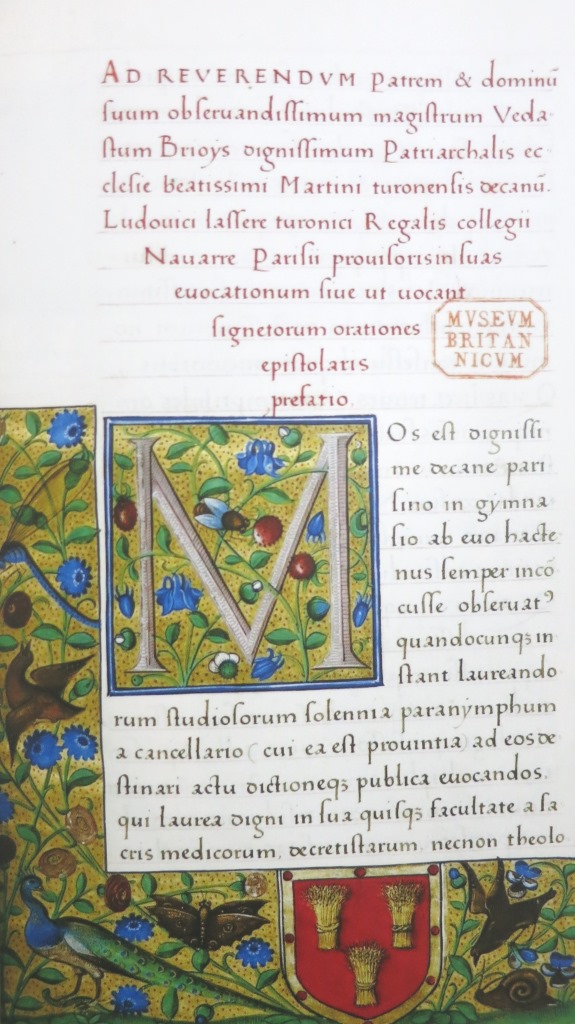 AD REVERENDVM Patrem & dominũ
ſuum obſeruandiſſimum magiſtrum Veda
ſtum Brioys digniſſimum Patriarchalis ec
cleſie beatissimi Martini turonenſis decanũ.
Ludouici laſſere turonici Regalis collegii
Nauarre Pariſii prouiſoris in ſuas
euocationum ſiue ut uocant
ſignetorum orationes
epiſtolaris
prefatio,
MVSEVM
BRITAN
NICVM
MOs eſt digniſſi
me decane pari
ſino in gymna
ſio ab euo hacte
nus ſemper incõ
cuſſe obſeruatꝰ
quandocunqꝫ in
ſtant laureando
rum ſtudioſorum ſolennia paranymphum
a cancellario (cui ea eſt prouintia) ad eos de
ſtinari actu dictioneqꝫ publica euocandos.
qui laurea digni in ſua quiſqꝫ facultate a ſa
cris medicorum, decretiſtarum, necnon theolo